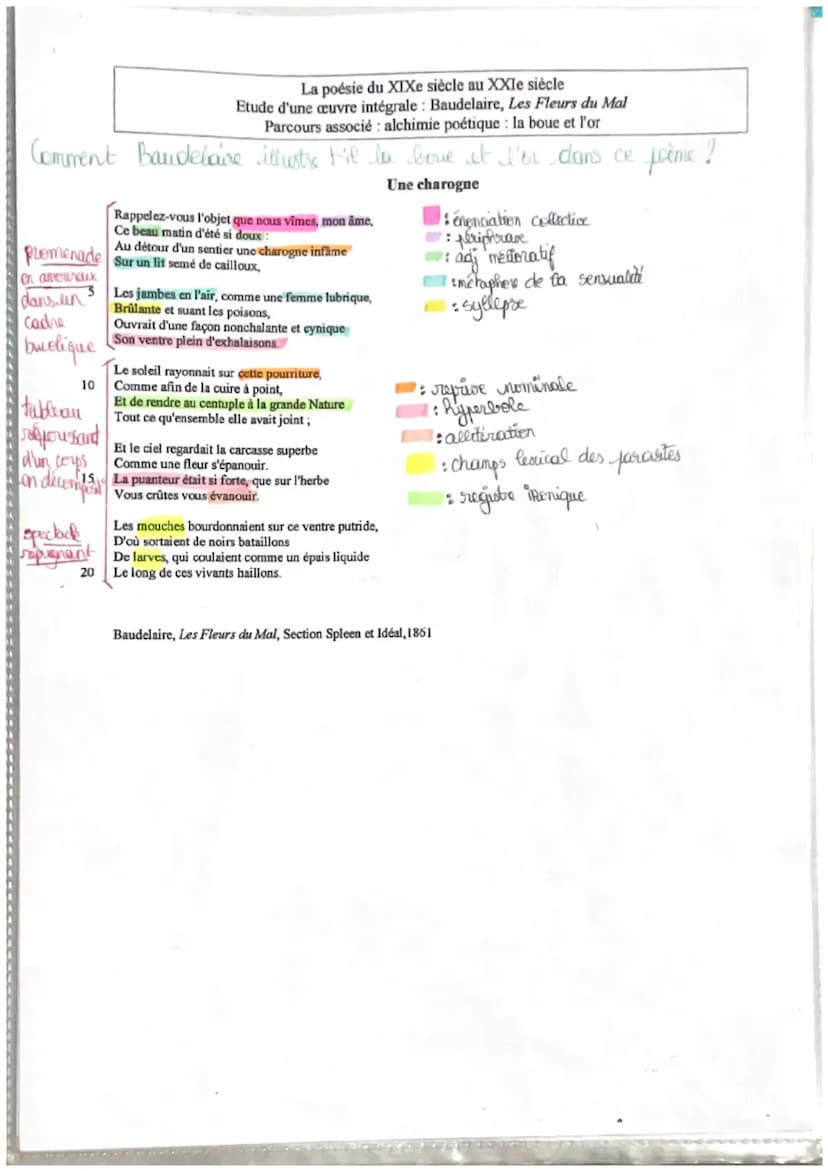 La poésie du XIXe siècle au XXIe siècle
Etude d'une œuvre intégrale : Baudelaire, Les Fleurs du Mal
Parcours associé : alchimie poétique : la boue et l'or
Comment Baudelaire illustre t-il la boue et l'or dans ce poème ?
Une charogne
Rappelez-vous l'objet que nous vîmes, mon âme,
Ce beau matin d'été si doux :
Au détour d'un sentier une charogne infâme
Sur un lit semé de cailloux,
5 Les jambes en l'air, comme une femme lubrique,
Brûlante et suant les poisons,
Ouvrait d'une façon nonchalante et cynique
Son ventre plein d'exhalaisons.
Le soleil rayonnait sur cette pourriture,
10 Comme afin de la cuire à point,
Et de rendre au centuple à la grande Nature
Tout ce qu'ensemble elle avait joint ;
Et le ciel regardait la carcasse superbe
Comme une fleur s'épanouir.
15 La puanteur était si forte, que sur l'herbe
Vous crûtes vous évanouir.
Les mouches bourdonnaient sur ce ventre putride,
D'où sortaient de noirs bataillons
De larves, qui coulaient comme un épais liquide
20 Le long de ces vivants haillons.
Baudelaire, Les Fleurs du Mal, Section Spleen et Idéal,1861
promenade
en amoureux
dans un
cadre
bucolique
tableau
repoussant
d'un corps
en décompost°
spectacle
répugnant
: énonciation collective
: périphrase
: adj mélioratif
: métaphore de la sensualité
: syllepse
: reprise nominale
: hyperbole
: allitération
: champs lexical des parasites
: registre ironique